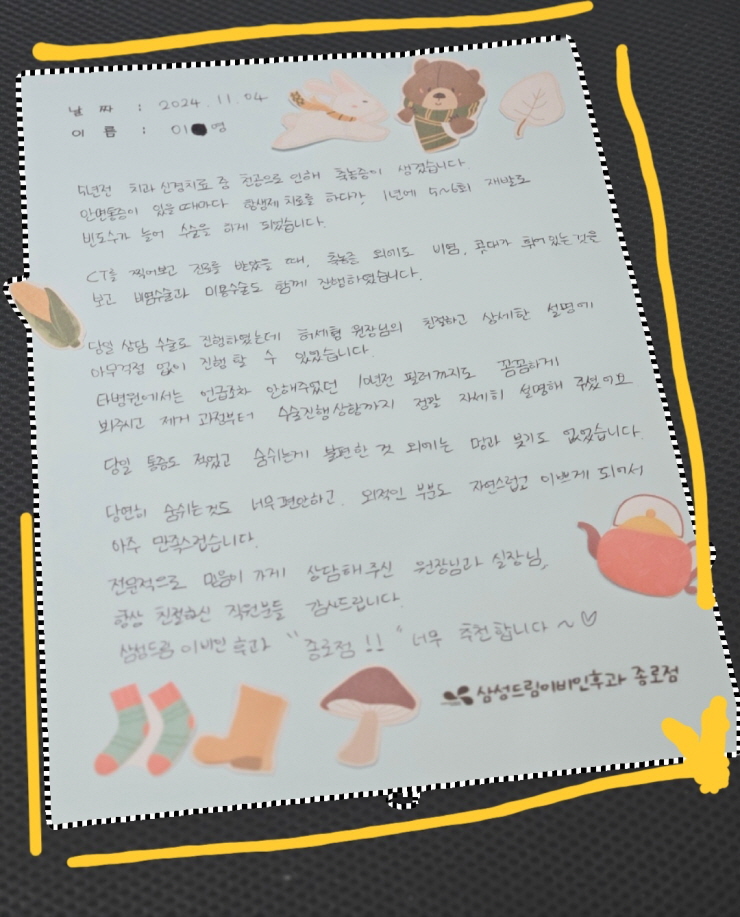 날 짜 : 2024. 11. 04
이 름 : 이 영
5년전 치과 신경치료 중 천공으로 인해 축농증이 생겼습니다.
안면통증이 있을때마다 항생제 치료를 하다가, 1년에 5~6회 재발로
빈도수가 늘어 수술을 하게 되었습니다.
CT를 찍어보고 진료를 받았을 때, 축농증 외에도 비염, 콧대가 휘어있는것을
보고 비염수술과 미용수술도 함께 진행하였습니다.
당일 상담 수술로 진행하였는데 허세형 원장님의 친절하고 상세한 설명에
아무걱정 없이 진행 할 수 있었습니다.
타병원에서는 언급조차 안해주었던 10년전 필러까지도 꼼꼼하게
봐주시고 제거 과정부터 수술진행상황까지 정말 자세히 설명해 주셨어요
당일 통증도 적었고 숨쉬는게 불편한 것 외에는 멍과 붓기도 없었습니다.
당연히 숨쉬는것도 너무편안하고, 외적인 부분도 자연스럽고 이쁘게 되어서
아주 만족스럽습니다.
전문적으로 믿음이 가게 상담해주신 원장님과 실장님,
항상 친절하신 직원분들 감사드립니다.
삼성드림 이비인후과 "종로점!!" 너무 추천합니다~♡
삼성드림이비인후과 종로점